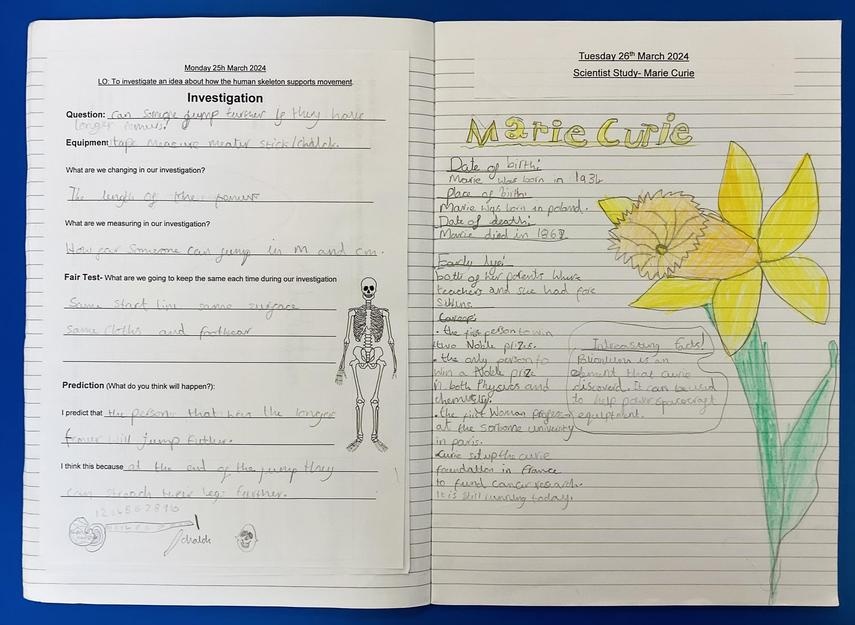 Monday 25h March 2024
LO: To investigate an idea about how the human skeleton supports movement.
Investigation
Question: can jump further if they have
longer
Equipment: tape measure meater stick/chalk.
What are we changing in our investigation?
The length of the
What are we measuring in our investigation?
How far someone can jump in M and cm.
Fair Test- What are we going to keep the same each time during our investigation
Same start line same surface
same cloths and footwear
Prediction (What do you think will happen?):
I predict that the person that has the longer
will jump further.
I think this because at the end of the jump they
can their legs further.
chalk
Tuesday 26th March 2024
Scientist Study- Marie Curie
Marie Curie
Date of birth:
Marie was born in
Place of birth:
Marie was born in poland.
Date of death:
Marie died in
Early life:
both of her parents where
teachers and she had fore
Career:
• the first person to win
two Noble prizes.
• the only person to
win a Noble prize
in both Physics and
chemistry.
• the first Woman professor
at the sorbone university
in paris.
Curie set up the curie
foundation in France
to fund cancer research.
It is still running today.
facts!
is an
element that curie
discovered. It can be used
to help power spacecraft
equiptment.